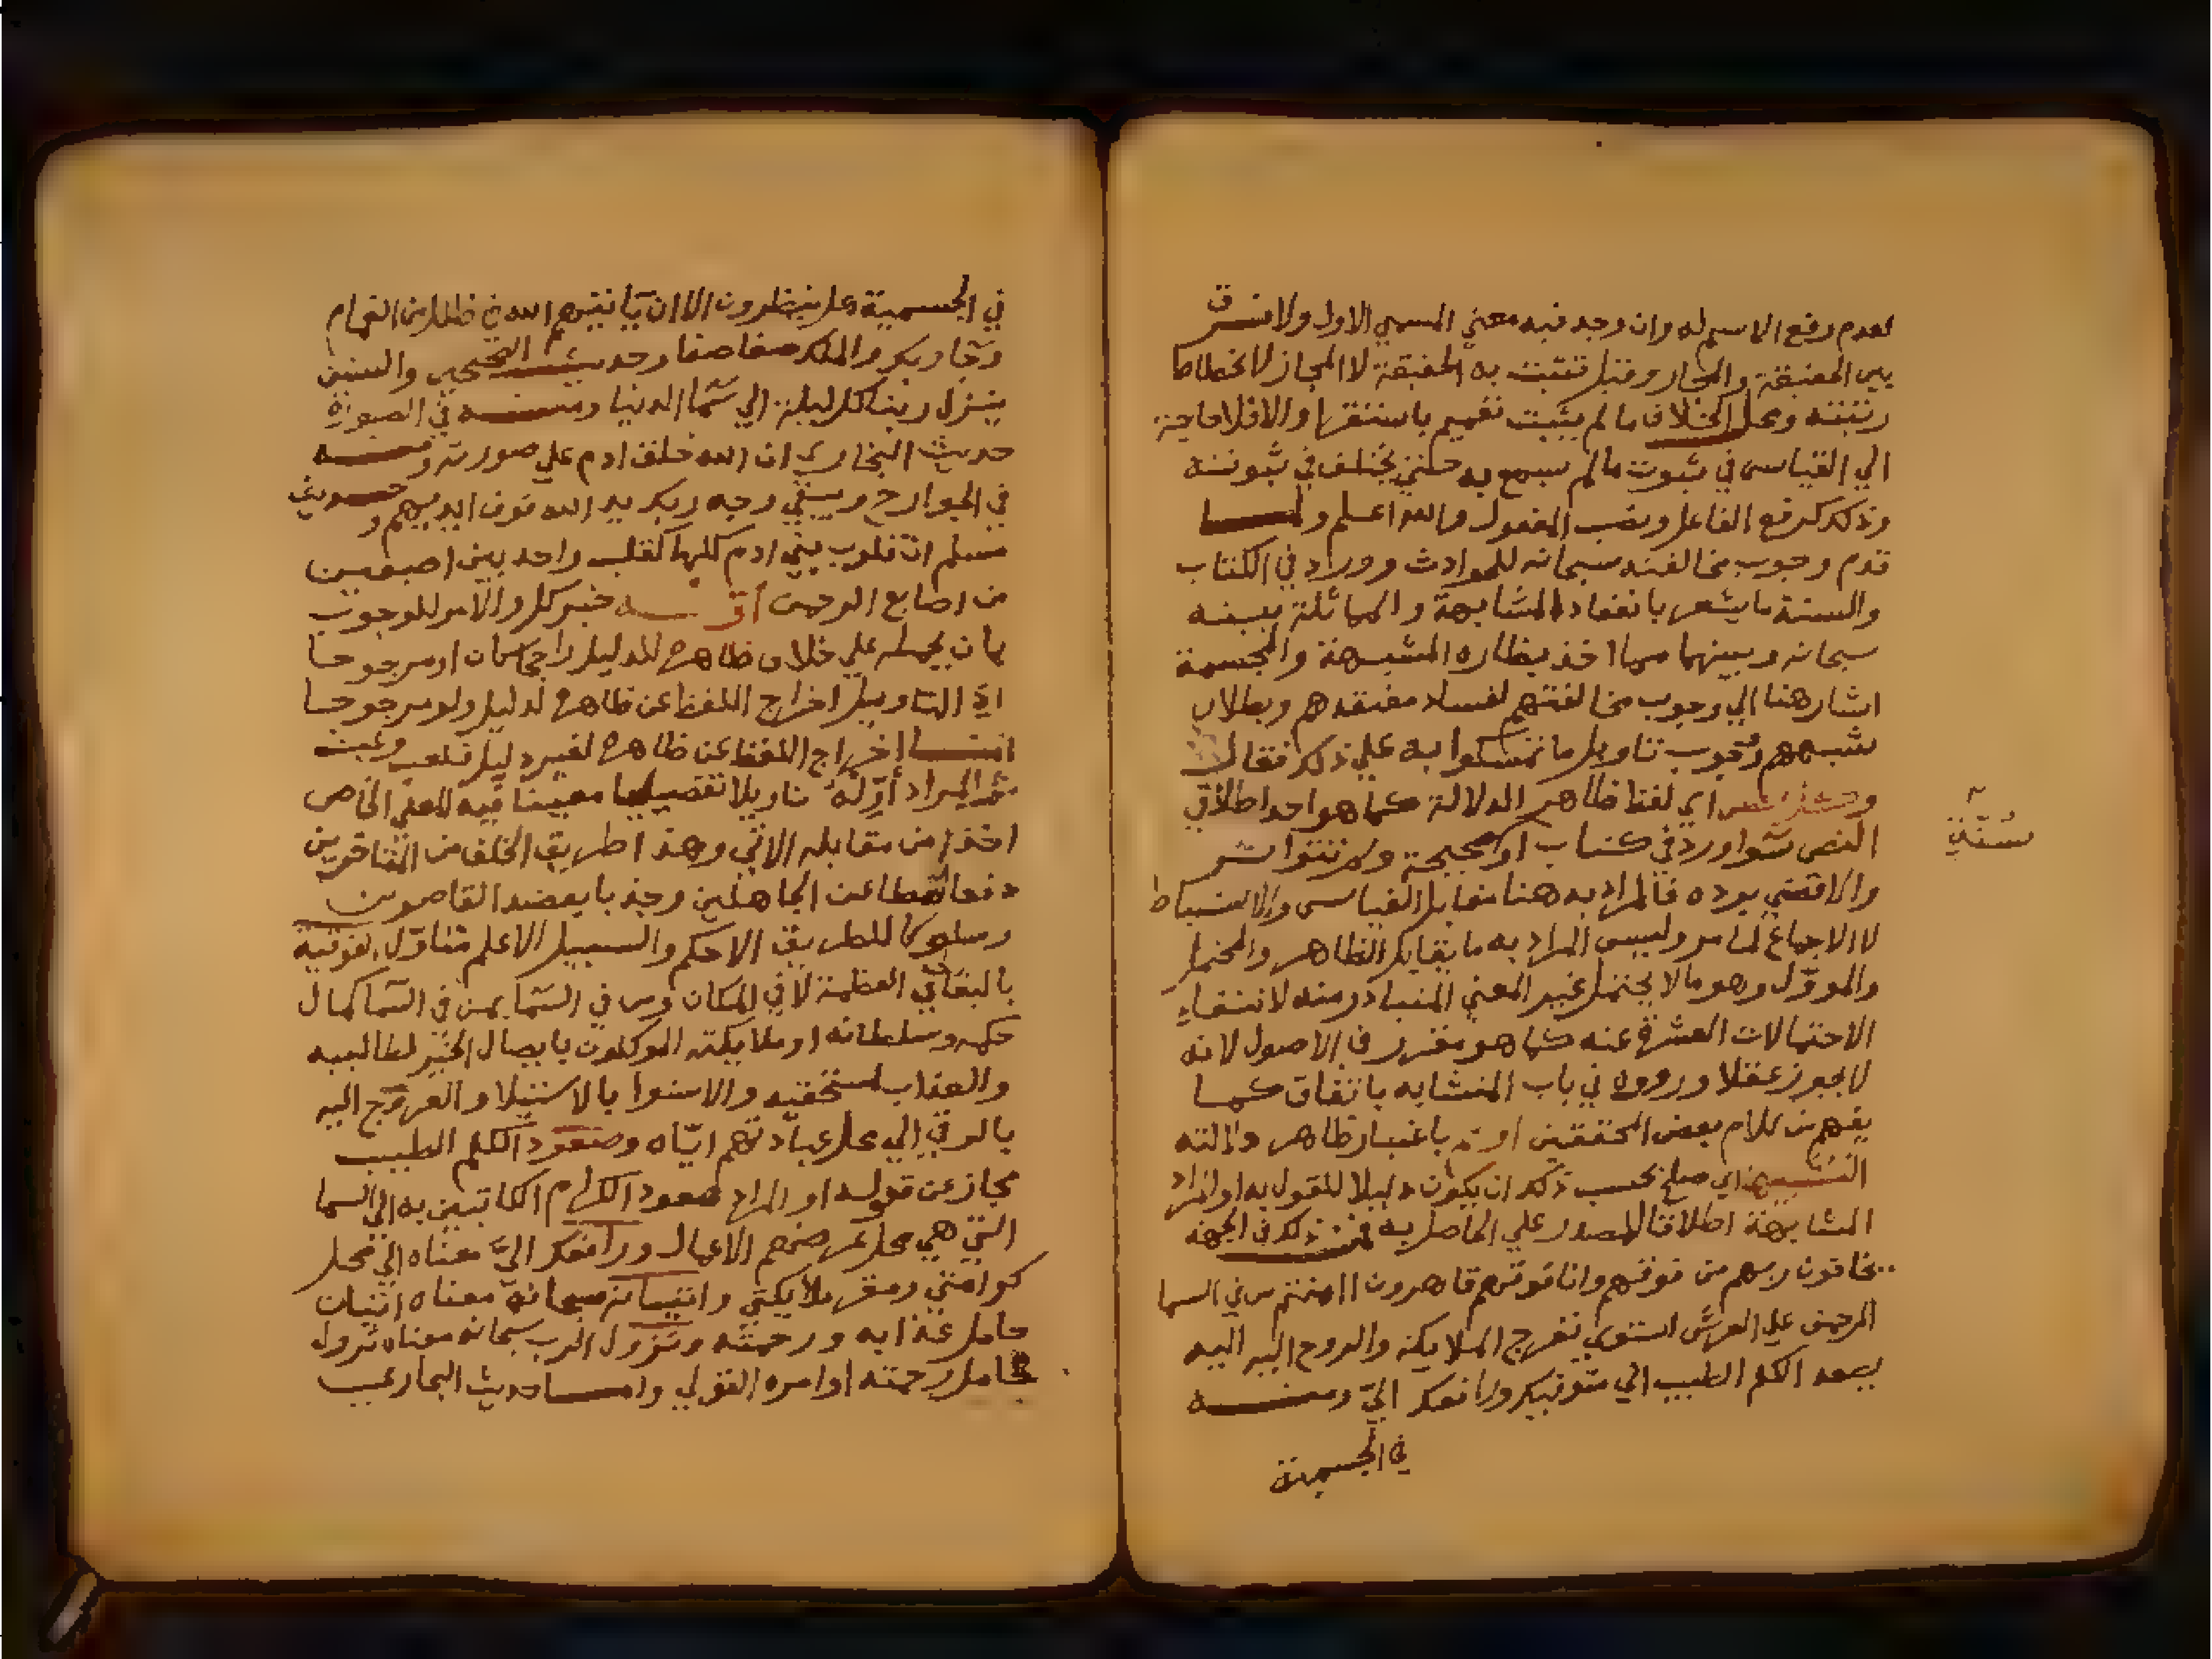 لعدم رفع الاسم له وان وجد فيه معني المسمي الاول ولا فرق
بين الحقيقة والمجاز وقيل تثبت به الحقيقة لا المجاز لانحطاط
رتبته ومحل الخلاف ما لم يثبت تعميم باستقرا والا فلا حاجة
الي القياس في ثبوت ما لم يسمع به حتي يختلف في ثبوته
وذلك كرفع الفاعل ونصب المفعول والله اعلم ولما
قدم وجوب مخالفته سبحانه للحوادث وورد في الكتاب
والسنة ما يشعر بانعقاد المشابهة والمماثلة بينه
سبحانه وبينهما مما اخذ بظاره المشبهة والمجسمة
اشار هنا الي وجوب مخالفتهم لفساد معتقدهم وبطلان
شبههم وجوب تاويل ما تمسكوا به علي ذلك فقال
وحيث نص اي لفظ ظاهر الدلالة كما هو احد اطلاقي
النص سوا ورد في كتاب او صحيحة ولم تتواتر
سنة
والا قضي برده فالمراد به هنا مقابل القياس والاستنباط
لا الاجماع لما مر وليس المراد به ما يقابل الظاهر والمحتمل
والموول وهو ما لا يحتمل غير المعني المتبادر منه لانتفاء
الاحتمالات العشرة عنه كما هو مقرر في الاصول لانه
لا يجوز عقلا وروده في باب المتشابه باتفاق كما
يفهم من كلام بعض المحققين اوهم باعتبار ظاهر دلالته
التشبيه اي صلح بحسب ذلك ان يكون دليلا للقول به او المراد
المشابهة اطلاقا للمصدر علي الحاصل به فمن ذلك في الجهة
يخافون ربهم من فوقهم وانا فوقهم قاهرون اامنتم من في السما
الرحمن علي العرش استوي تعرج الملايكة والروح اليه اليه
يصعد الكلم الطيب اني متوفيك ورافعك الي ومنه
في الجسمية
في الجسمية هل ينظرون الا ان يأتيهم الله في ظلل من الغمام
وجا ربك والملك صفا صفا وحديث الصحيحين والسنن
ينزل ربنا كل ليلة الي سما الدنيا ومنه في الصورة
حديث البخاري ان الله خلق ادم علي صورته ومنه
في الجوارح ويبقي وجه ربك يد الله فوق ايديهم وحديث
مسلم ان قلوب بني ادم كلها كقلب واحد بين اصبعين
من اصابع الرحمن اوله خبر كل والامر للوجوب
بان يحمله علي خلاف ظاهره لدليل راجحا كان او مرجوحا
اذ التاويل اخراج اللفظ عن ظاهره لدليل ولو مرجوحا
اما اخراج اللفظ عن ظاهره لغير دليل فلعب وعبث
ثم المراد أوّله تاويلا تفصيليا معينا فيه المعني الخاص
اخذا من مقابله الاتي وهذا طريق الخلف من المتاخرين
دفعا لمطاعن الجاهلين وجذبا بعضد القاصرين
وسلوكا للطريق الاحكم والسبيل الاعلم فتاول الفوقية
بالتعالي في العظمة لا في المكان ومن في السما بمن في السما كمال
حكمه وسلطانه او ملايكته الموكلون بايصال الخير لطالبيه
والعذاب لمستحقيه والاستوا بالاستيلا والعروج اليه
بالرقي الي محل عبادتهم ايّاه وصعود الكلم الطيب
مجاز عن قوله او المراد صعود الكرام الكاتبين به الي السما
التي هي محل عرضهم الاعمال ورافعك اليّ معناه الي محل
كرامتي ومقر ملايكتي واتيانه سبحانه معناه اتيان
حامل عذابه ورحمته ونزول الرب سبحانه معناه نزول
حامل رحمته او امره القولي واما حديث البخاري